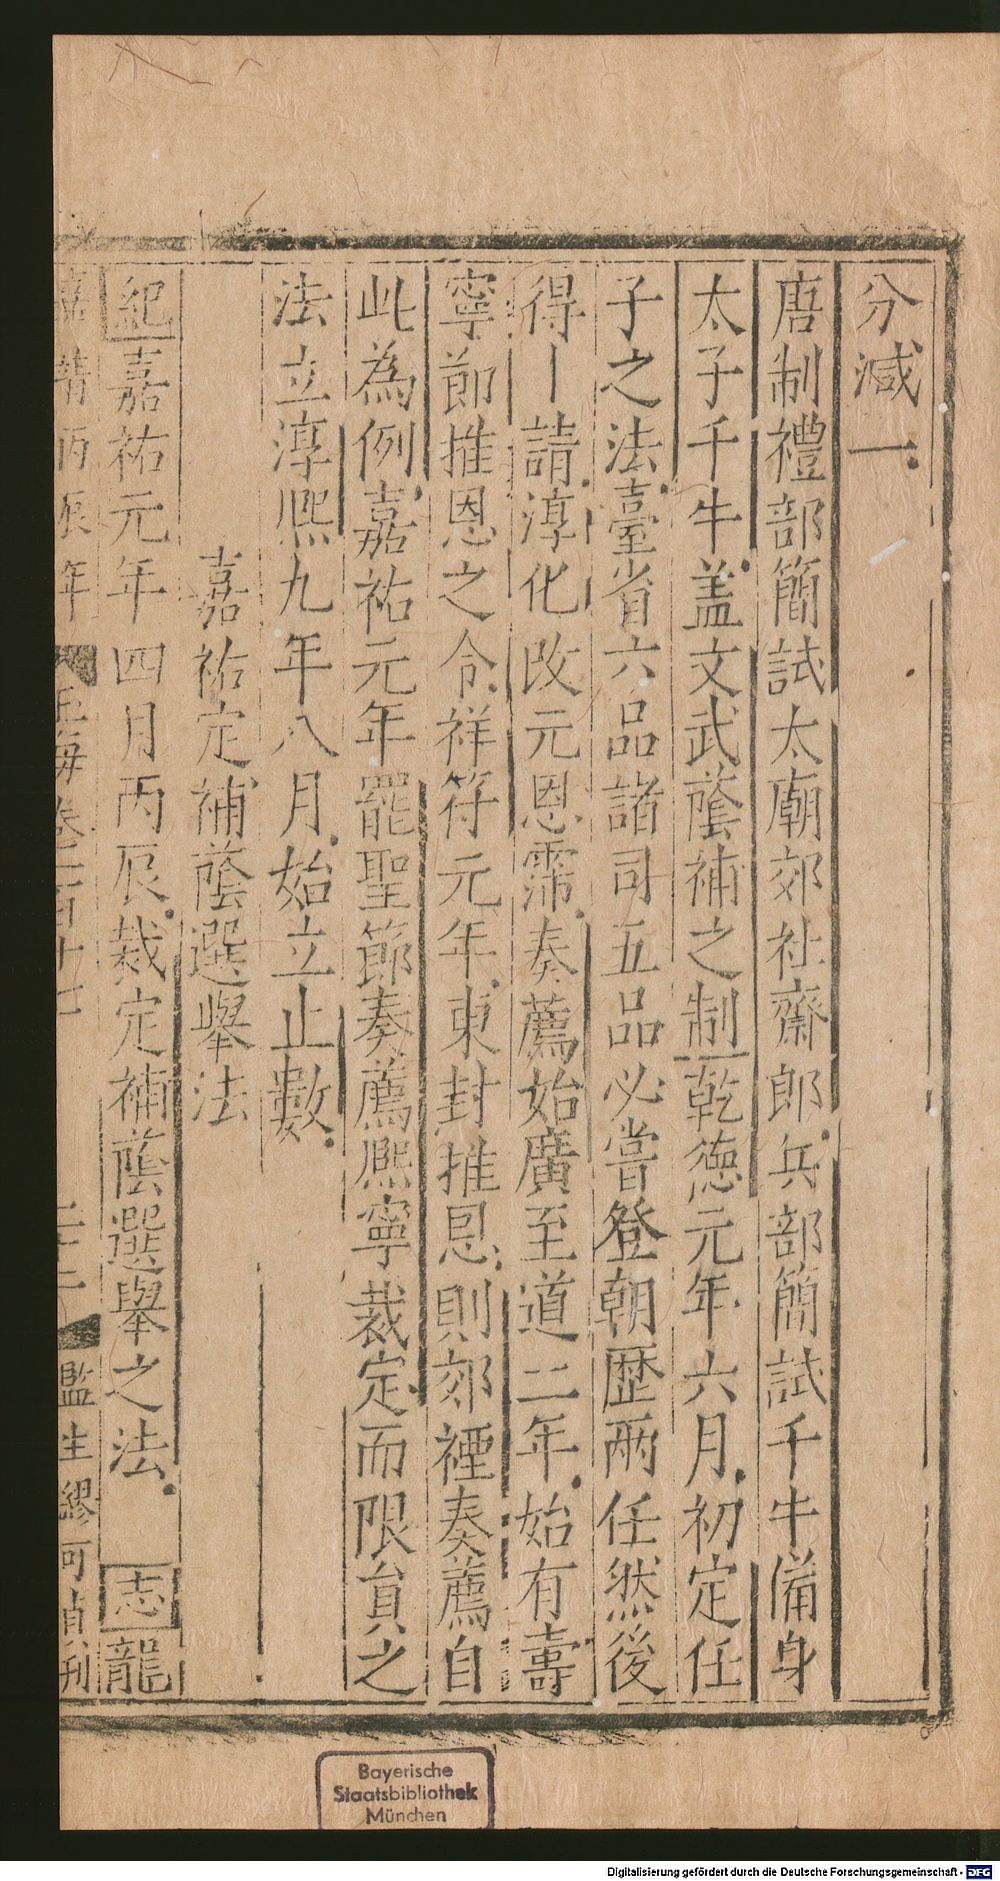 分減一
唐制禮部簡試太廟郊社齋郎兵部簡試千牛備身
太子千牛盖文武蔭補之制乾德元年六月初定任
子之法臺省六品諸司五品必嘗登朝歴兩任然後
得丨請淳化改元恩霈奏薦始廣至道二年始有壽
寧節推恩之令祥符元年東封推恩則郊禋奏薦自
此為例嘉祐元年罷聖節奏薦熈寧裁定而限貟之
法立淳熈九年八月始立止數
嘉祐定補蔭選舉法
紀嘉祐元年四月丙辰裁定補蔭選舉之法 志龍
嘉靖丙辰年 玉海卷二百十七 二十二 監生繆可貞刊
Bayerische
Staatsbibliothek
München
Digitalisierung gefördert durch die Deutsche Forschungsgemeinschaft - DFG